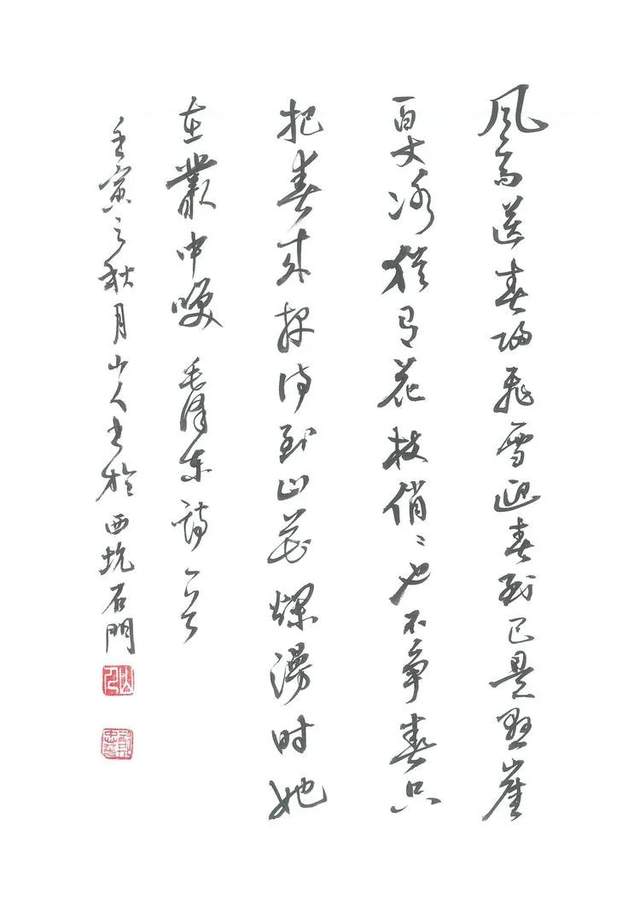 风雨送春归飞雪迎春到已是悬崖
百丈冰犹有花枝俏〻也不争春只
把春来报待到山花烂漫时她
在叢中咲 毛泽东诗一首
壬寅之秋月山人书於西坑石門